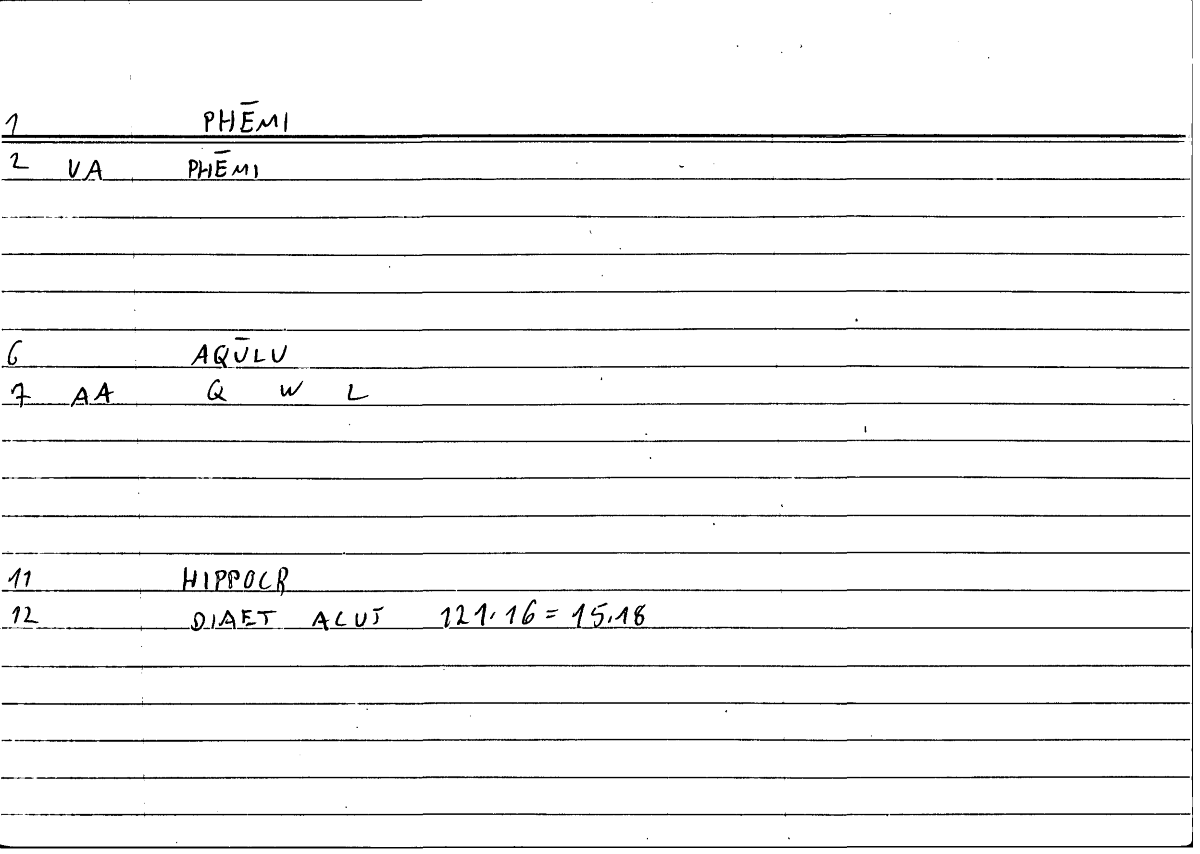 1 PHĒMI
2 VA PHĒMI
6 AQŪLU
7 AA Q W L
11 HIPPOCR
12 DIAET ACUT 121.16 = 15.18